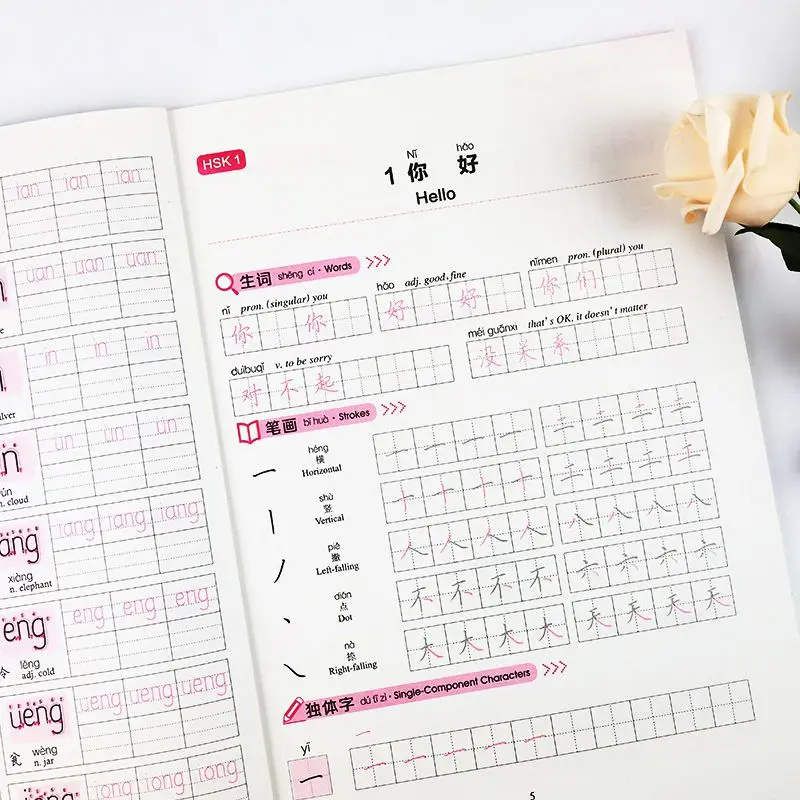 ian ian ian
uan uan uan
in in in
ün ün ün
n. cloud
iang iang iang
xiàng
n. elephant
eng eng eng
lěng
adj. cold
ueng ueng ueng
wèng
n. jar
iong iong iong
HSK 1
Nǐ hǎo
1 你 好
Hello
生词 shēng cí · Words
nǐ pron. (singular) you
你 你
hǎo adj. good, fine
好 好
nǐmen pron. (plural) you
你 们
duìbuqǐ v. to be sorry
对 不 起
méi guānxi that's OK, it doesn't matter
没 关 系
笔画 bǐ huà · Strokes
héng
横
Horizontal
一 一 一 一 二 二 二 二
shù
竖
Vertical
十 十 十 十 工 工 工 工
piě
撇
Left-falling
人 人 人 人 八 八 八 八
diǎn
点
Dot
不 不 不 不 六 六 六 六
nà
捺
Right-falling
大 大 大 大 天 天 天 天
独体字 dú tǐ zì · Single-Component Characters
yī
一
一
一 一 一 一
5